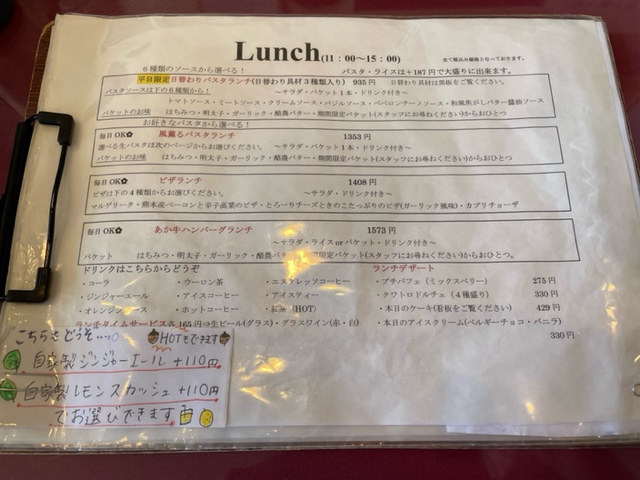 Lunch(11：00～15：00)
全て税込み価格となっております。
6種類のソースから選べる！
パスタ・ライスは＋187円で大盛りに出来ます。
平日限定日替わりパスタランチ(日替わり具材3種類入り) 935円 日替わり具材は黒板をご覧ください。
パスタソースは下の6種類から！ ～サラダ・バケット1本・ドリンク付き～
トマトソース・ミートソース・クリームソース・バジルソース・ペペロンチーノソース・和風焦がしバター醤油ソース
バケットのお味 はちみつ・明太子・ガーリック・酪農バター・期間限定バケット(スタッフにお尋ねください)からおひとつ
お好きなパスタから選べる！
毎日OK✿ 風薫るパスタランチ 1353円
選べる生パスタは次のページからお選びください。 ～サラダ・バケット1本・ドリンク付き～
バケットのお味 はちみつ・明太子・ガーリック・酪農バター・期間限定バケット(スタッフにお尋ねください)からおひとつ
毎日OK✿ ピザランチ 1408円
ピザは下の4種類からお選びください。 ～サラダ・ドリンク付き～
マルゲリータ・熊本産ベーコンと辛子高菜のピザ・とろーりチーズときのこたっぷりのピザ(ガーリック風味)・カプリチョーザ
毎日OK✿ あか牛ハンバーグランチ 1573円
～サラダ・ライスorバケット・ドリンク付き～
バケット はちみつ・明太子・ガーリック・酪農バター・期間限定バケット(スタッフにお尋ねください)からおひとつ。
ドリンクはこちらからどうぞ
・コーラ ・ウーロン茶 ・エスプレッソコーヒー
・ジンジャーエール ・アイスコーヒー ・アイスティー
・オレンジジュース ・ホットコーヒー ・紅茶（HOT）
ランチタイムサービス各165円⇒生ビール(グラス)・グラスワイン(赤・白)
ランチデザート
・プチパフェ（ミックスベリー） 275円
・クワトロドルチェ（4種盛り） 330円
・本日のケーキ(看板をご覧ください) 429円
・本日のアイスクリーム(ベルギーチョコ・バニラ)
330円
こちらもどうぞ…
HOTもできます
自家製ジンジャーエール +110円
自家製レモンスカッシュ +110円
でお選びできます